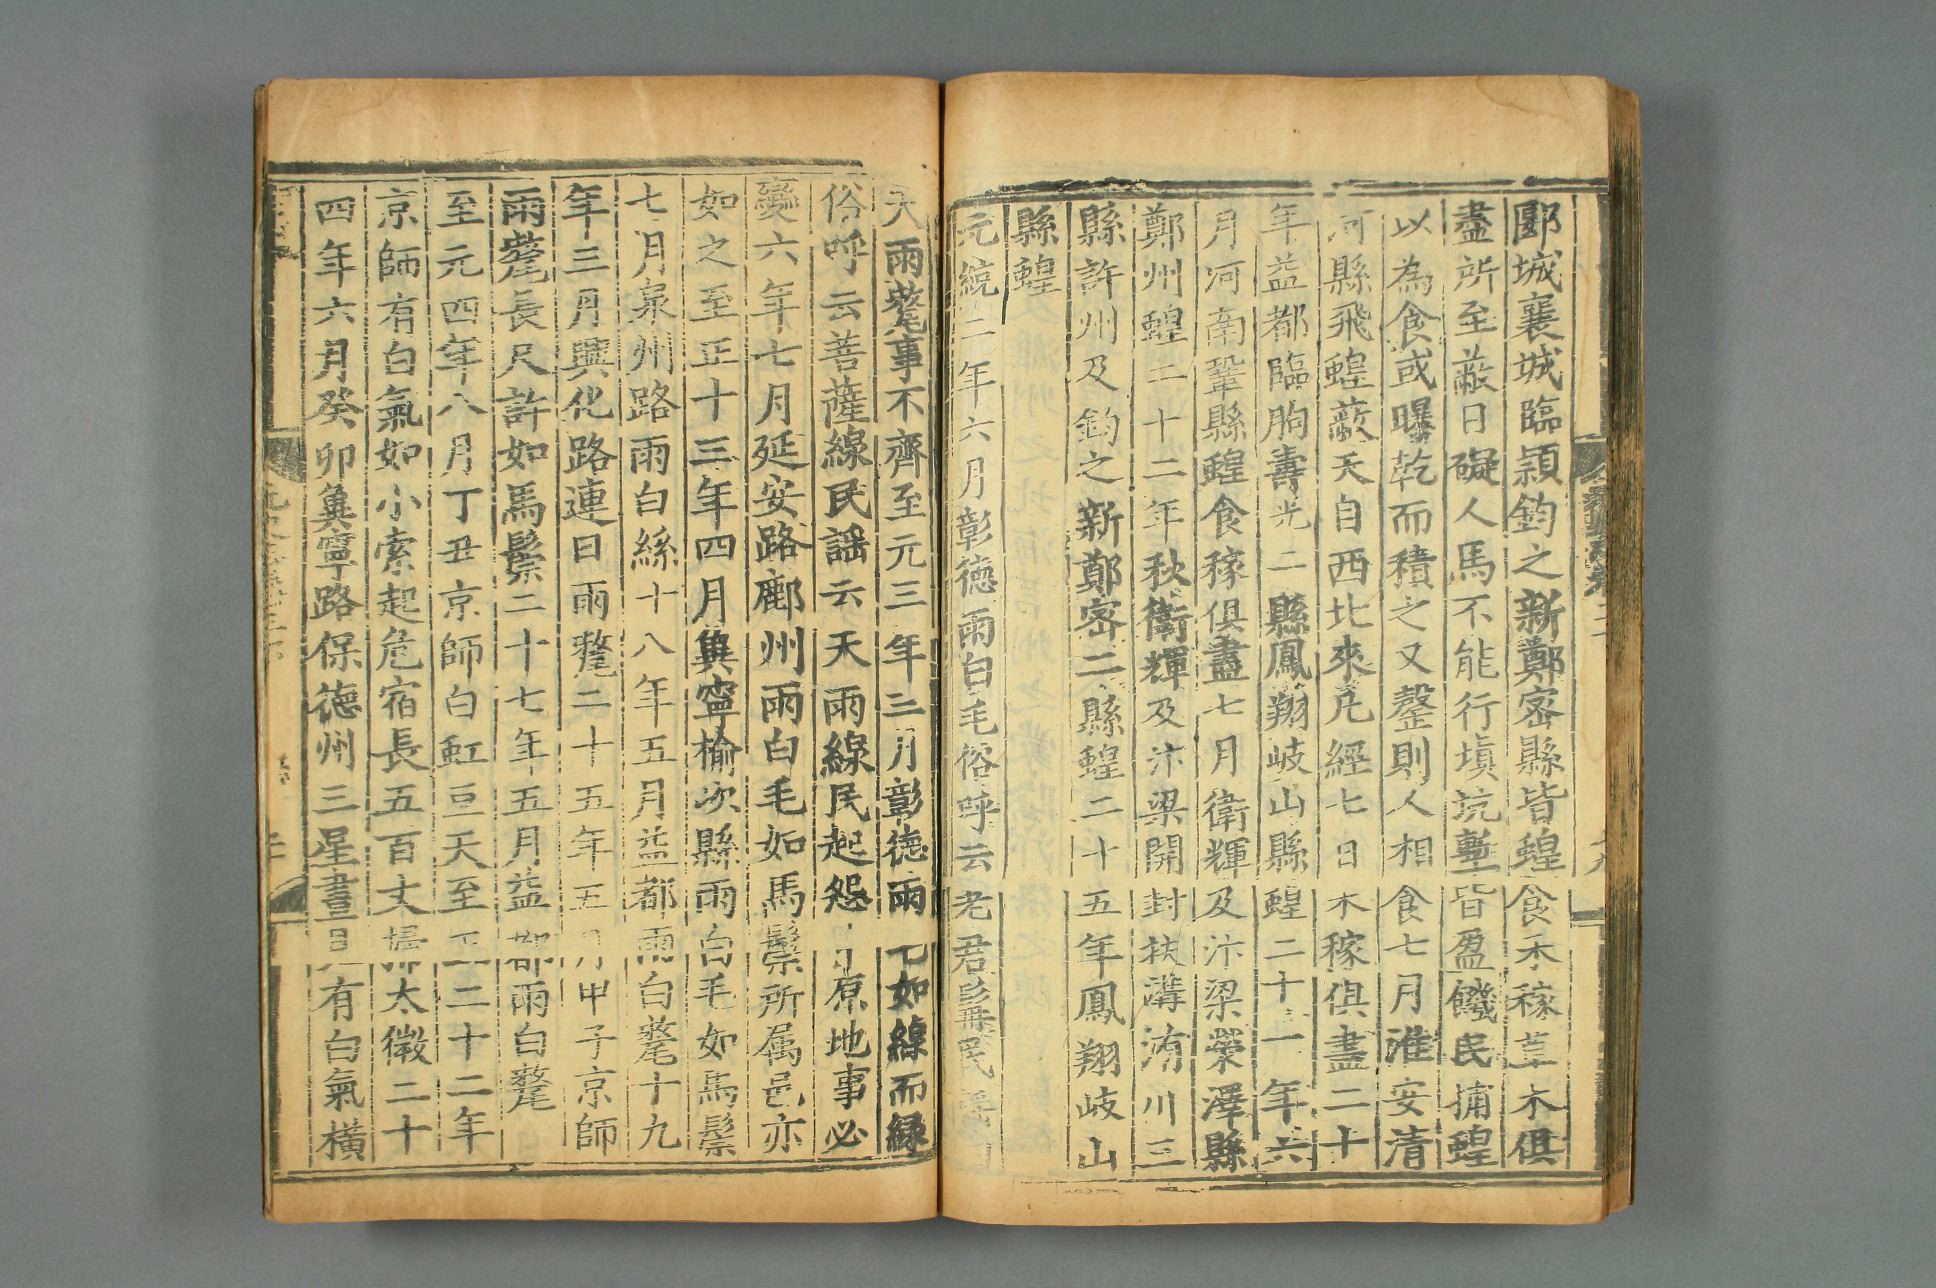 郾城襄城臨潁鈞之新鄭密縣皆蝗食禾稼草木俱
盡所至蔽日礙人馬不能行塡坑塹皆盈饑民捕蝗
以為食或曝乾而積之又罄則人相食七月淮安清
河縣飛蝗蔽天自西北來凡經七日禾稼俱盡二十
年益都臨朐壽光二縣鳳翔岐山縣蝗二十一年六
月河南鞏縣蝗食稼俱盡七月衛輝及汴梁滎澤縣
鄭州蝗二十二年秋衛輝及汴梁開封扶溝洧川三
縣許州及鈞之新鄭密二縣蝗二十五年鳳翔岐山
縣蝗
元統二年六月彰德雨白毛俗呼云老君髯民謡
天雨氂事不齊至元三年三月彰德雨 如線而綠
俗呼云菩薩線民謡云天雨線民起怨中原地事必
變六年七月延安路鄜州雨白毛如馬鬃所属邑亦
如之至正十三年四月冀寧榆次縣雨白毛如馬鬃
七月泉州路雨白絲十八年五月益都雨白氂十九
年三月興化路連日雨氂二十五年五月甲子京師
雨氂長尺許如馬鬃二十七年五月益都雨白氂
至元四年八月丁丑京師白虹亘天至正二十二年
京師有白氣如小索起危宿長五百丈掃太微二十
四年六月癸卯冀寧路保德州三星晝見有白氣橫